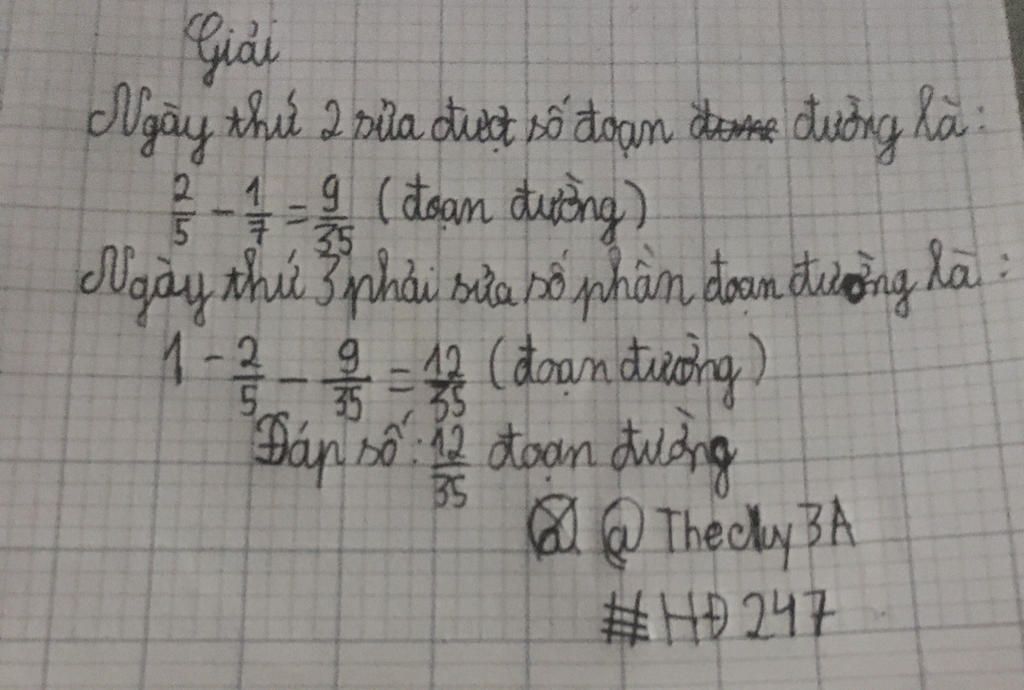 Giải
Ngày thứ 2 sửa được số đoạn đường là:
2/5 - 1/7 = 9/35 (đoạn đường)
Ngày thứ 3 phải sửa số phần đoạn đường là:
1 - 2/5 - 9/35 = 12/35 (đoạn đường)
Đáp số: 12/35 đoạn đường
@ Thecluy 3A
#HĐ247